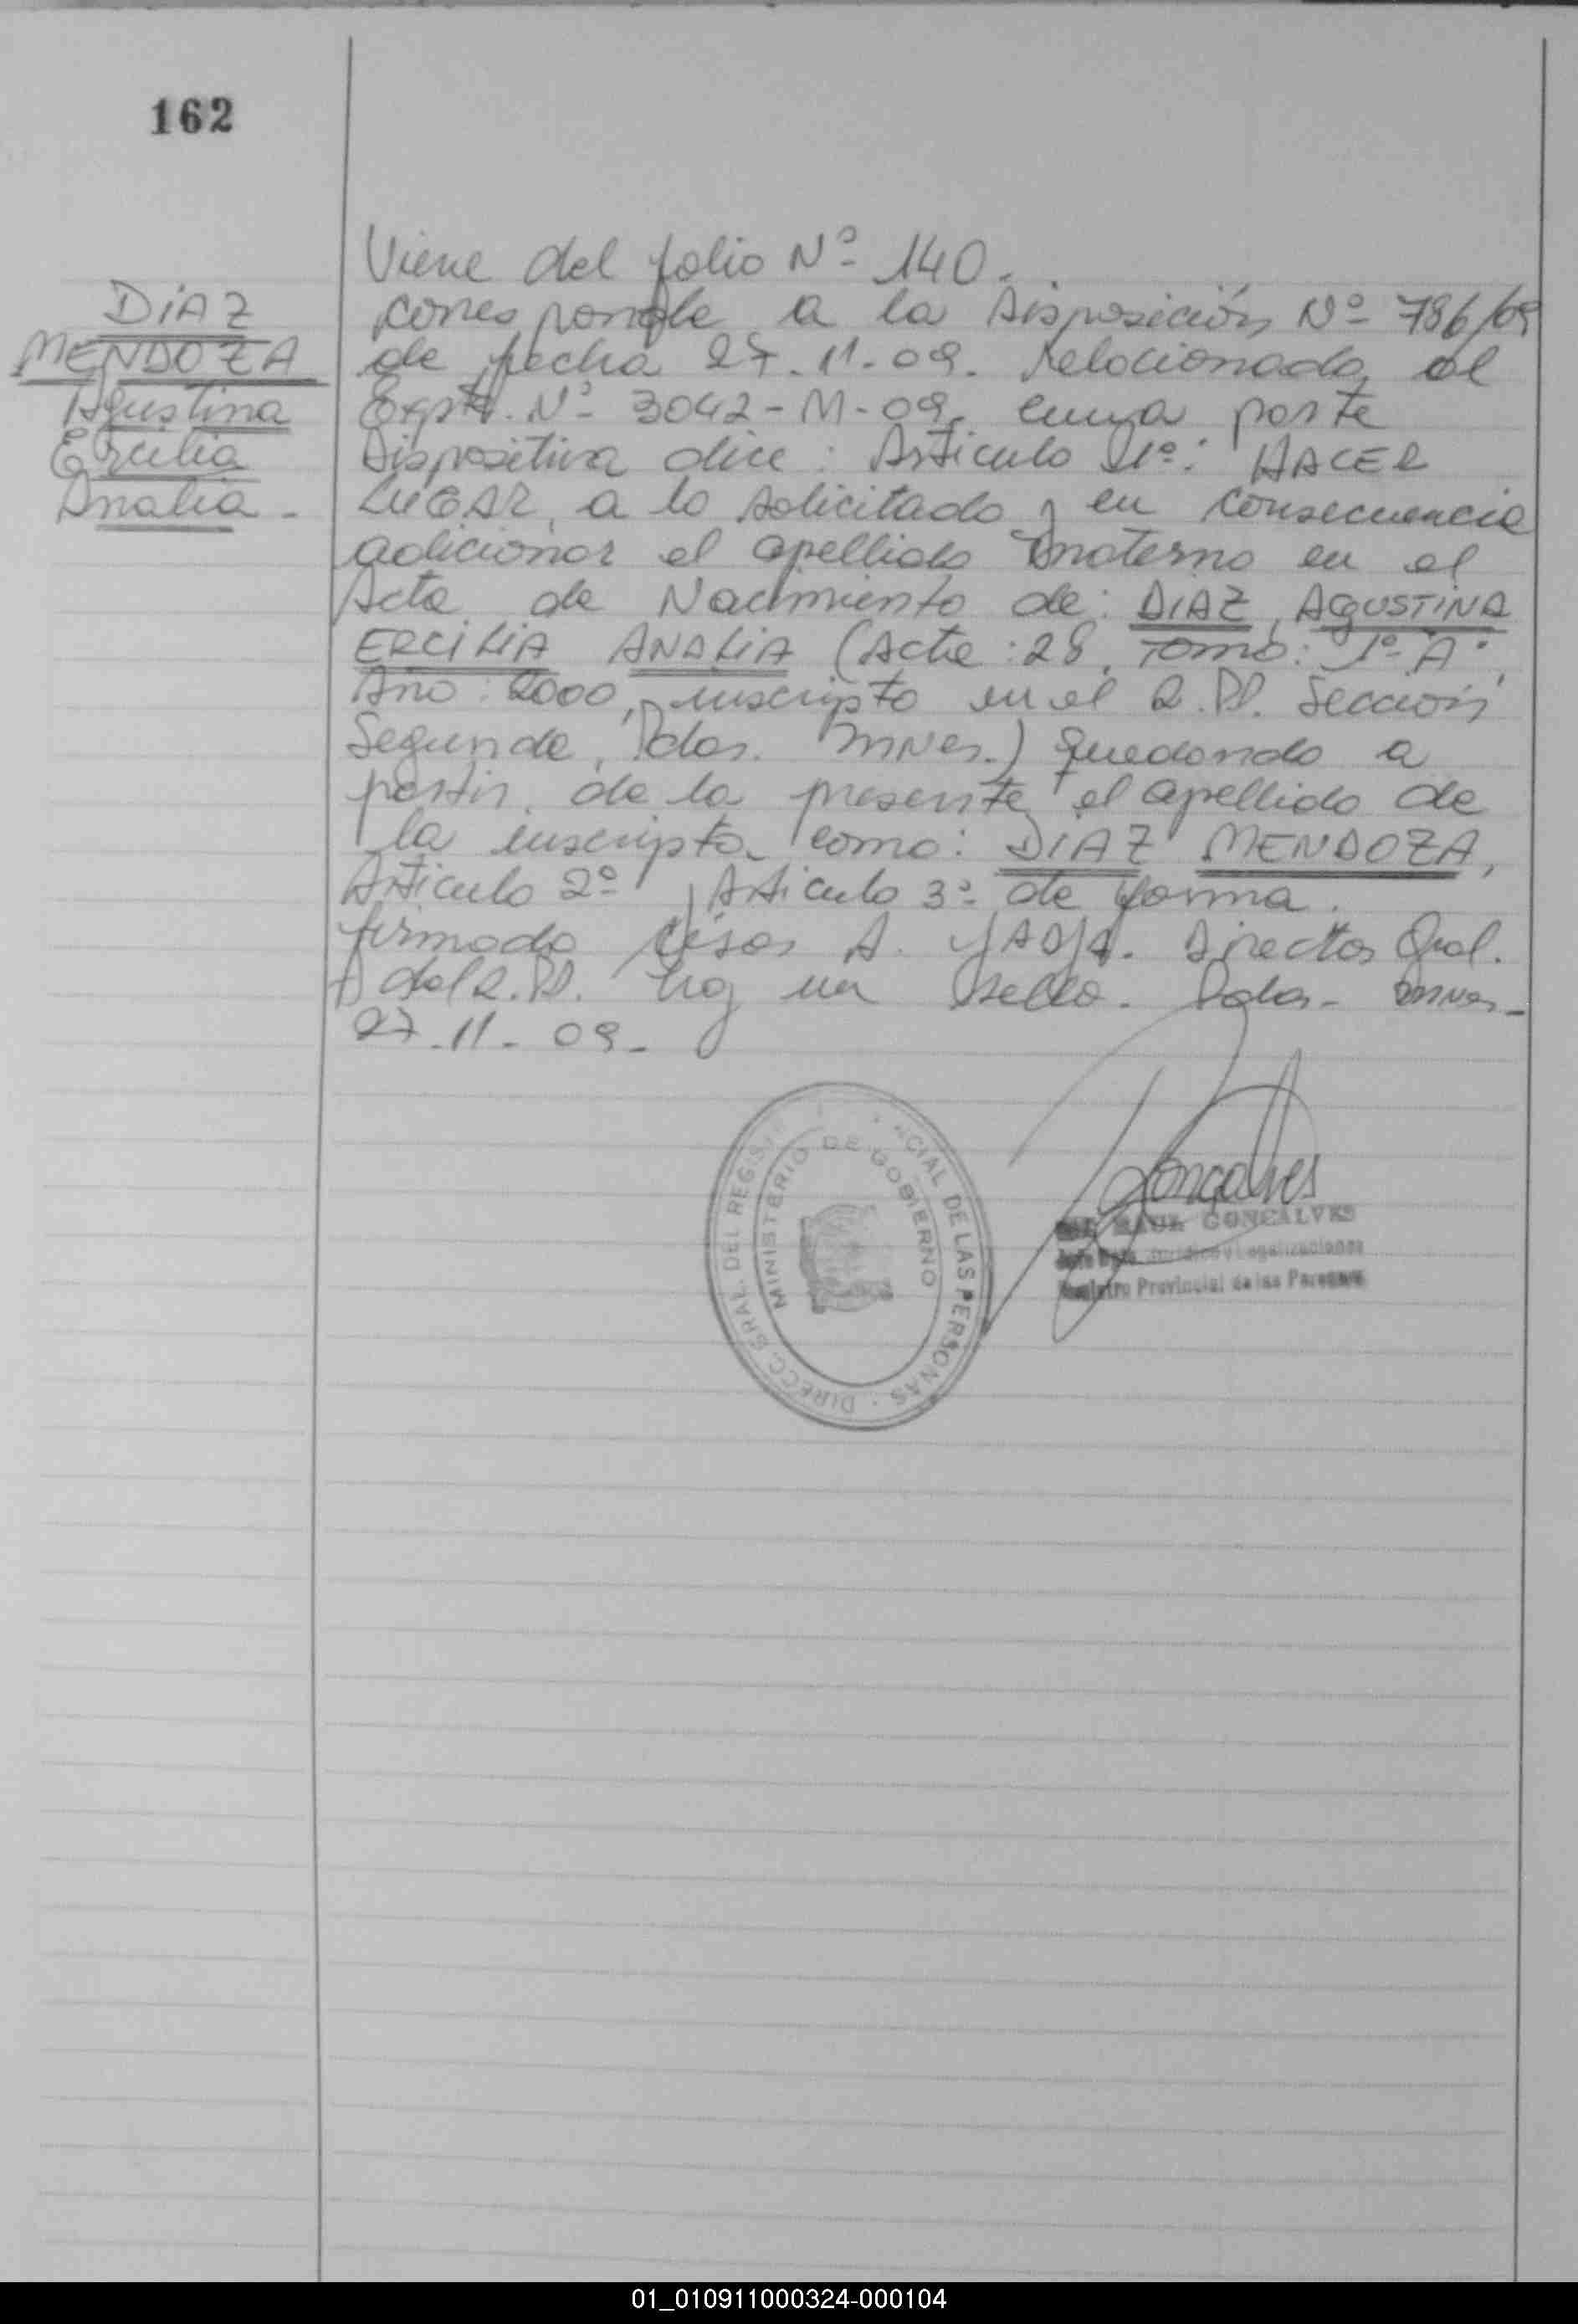 162
DIAZ
MENDOZA
Agustina
Ercilia
Analia -
Viene del folio Nº 140.
corresponde a la Disposición Nº 786/09
de fecha 27-11-09. relacionado al
Expte. Nº 3042-M-09, cuya parte
Dispositiva dice: Articulo 1º: HACER
LUGAR, a lo solicitado y en consecuencia
adicionar el apellido materno en el
Acta de Nacimiento de: DIAZ, AGUSTINA
ERCILIA ANALIA (Acta: 28, Tomo: 1º A,
Año: 2000, inscripto en el R.P.P. Sección
Segunda, Pdas. Mnes.) quedando a
partir de la presente el apellido de
la inscripta como: DIAZ MENDOZA,
Articulo 2º y Articulo 3º de forma.
firmado César A. Director Gral.
del R.P.P. hay un sello. Pdas. Mnes-
27-11-09-
DIRECC. GRAL. DEL REGIS CIAL DE LAS PERSONAS
MINISTERIO DE GOBIERNO
Goncalves
RAUL GONCALVES
Jurídico y Legalizaciones
Registro Provincial de las Personas
01_010911000324-000104